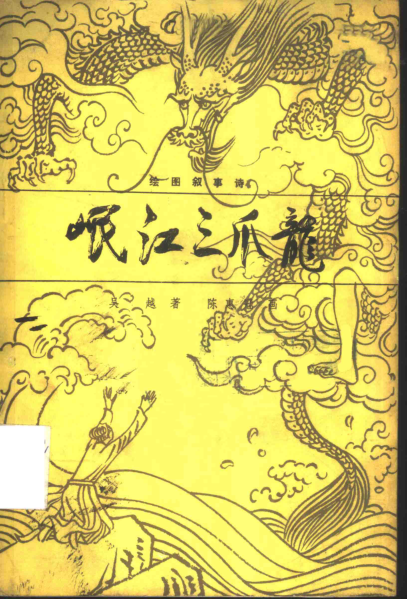 绘图叙事诗
岷江三爪龍
吴越著 陈惠冠画